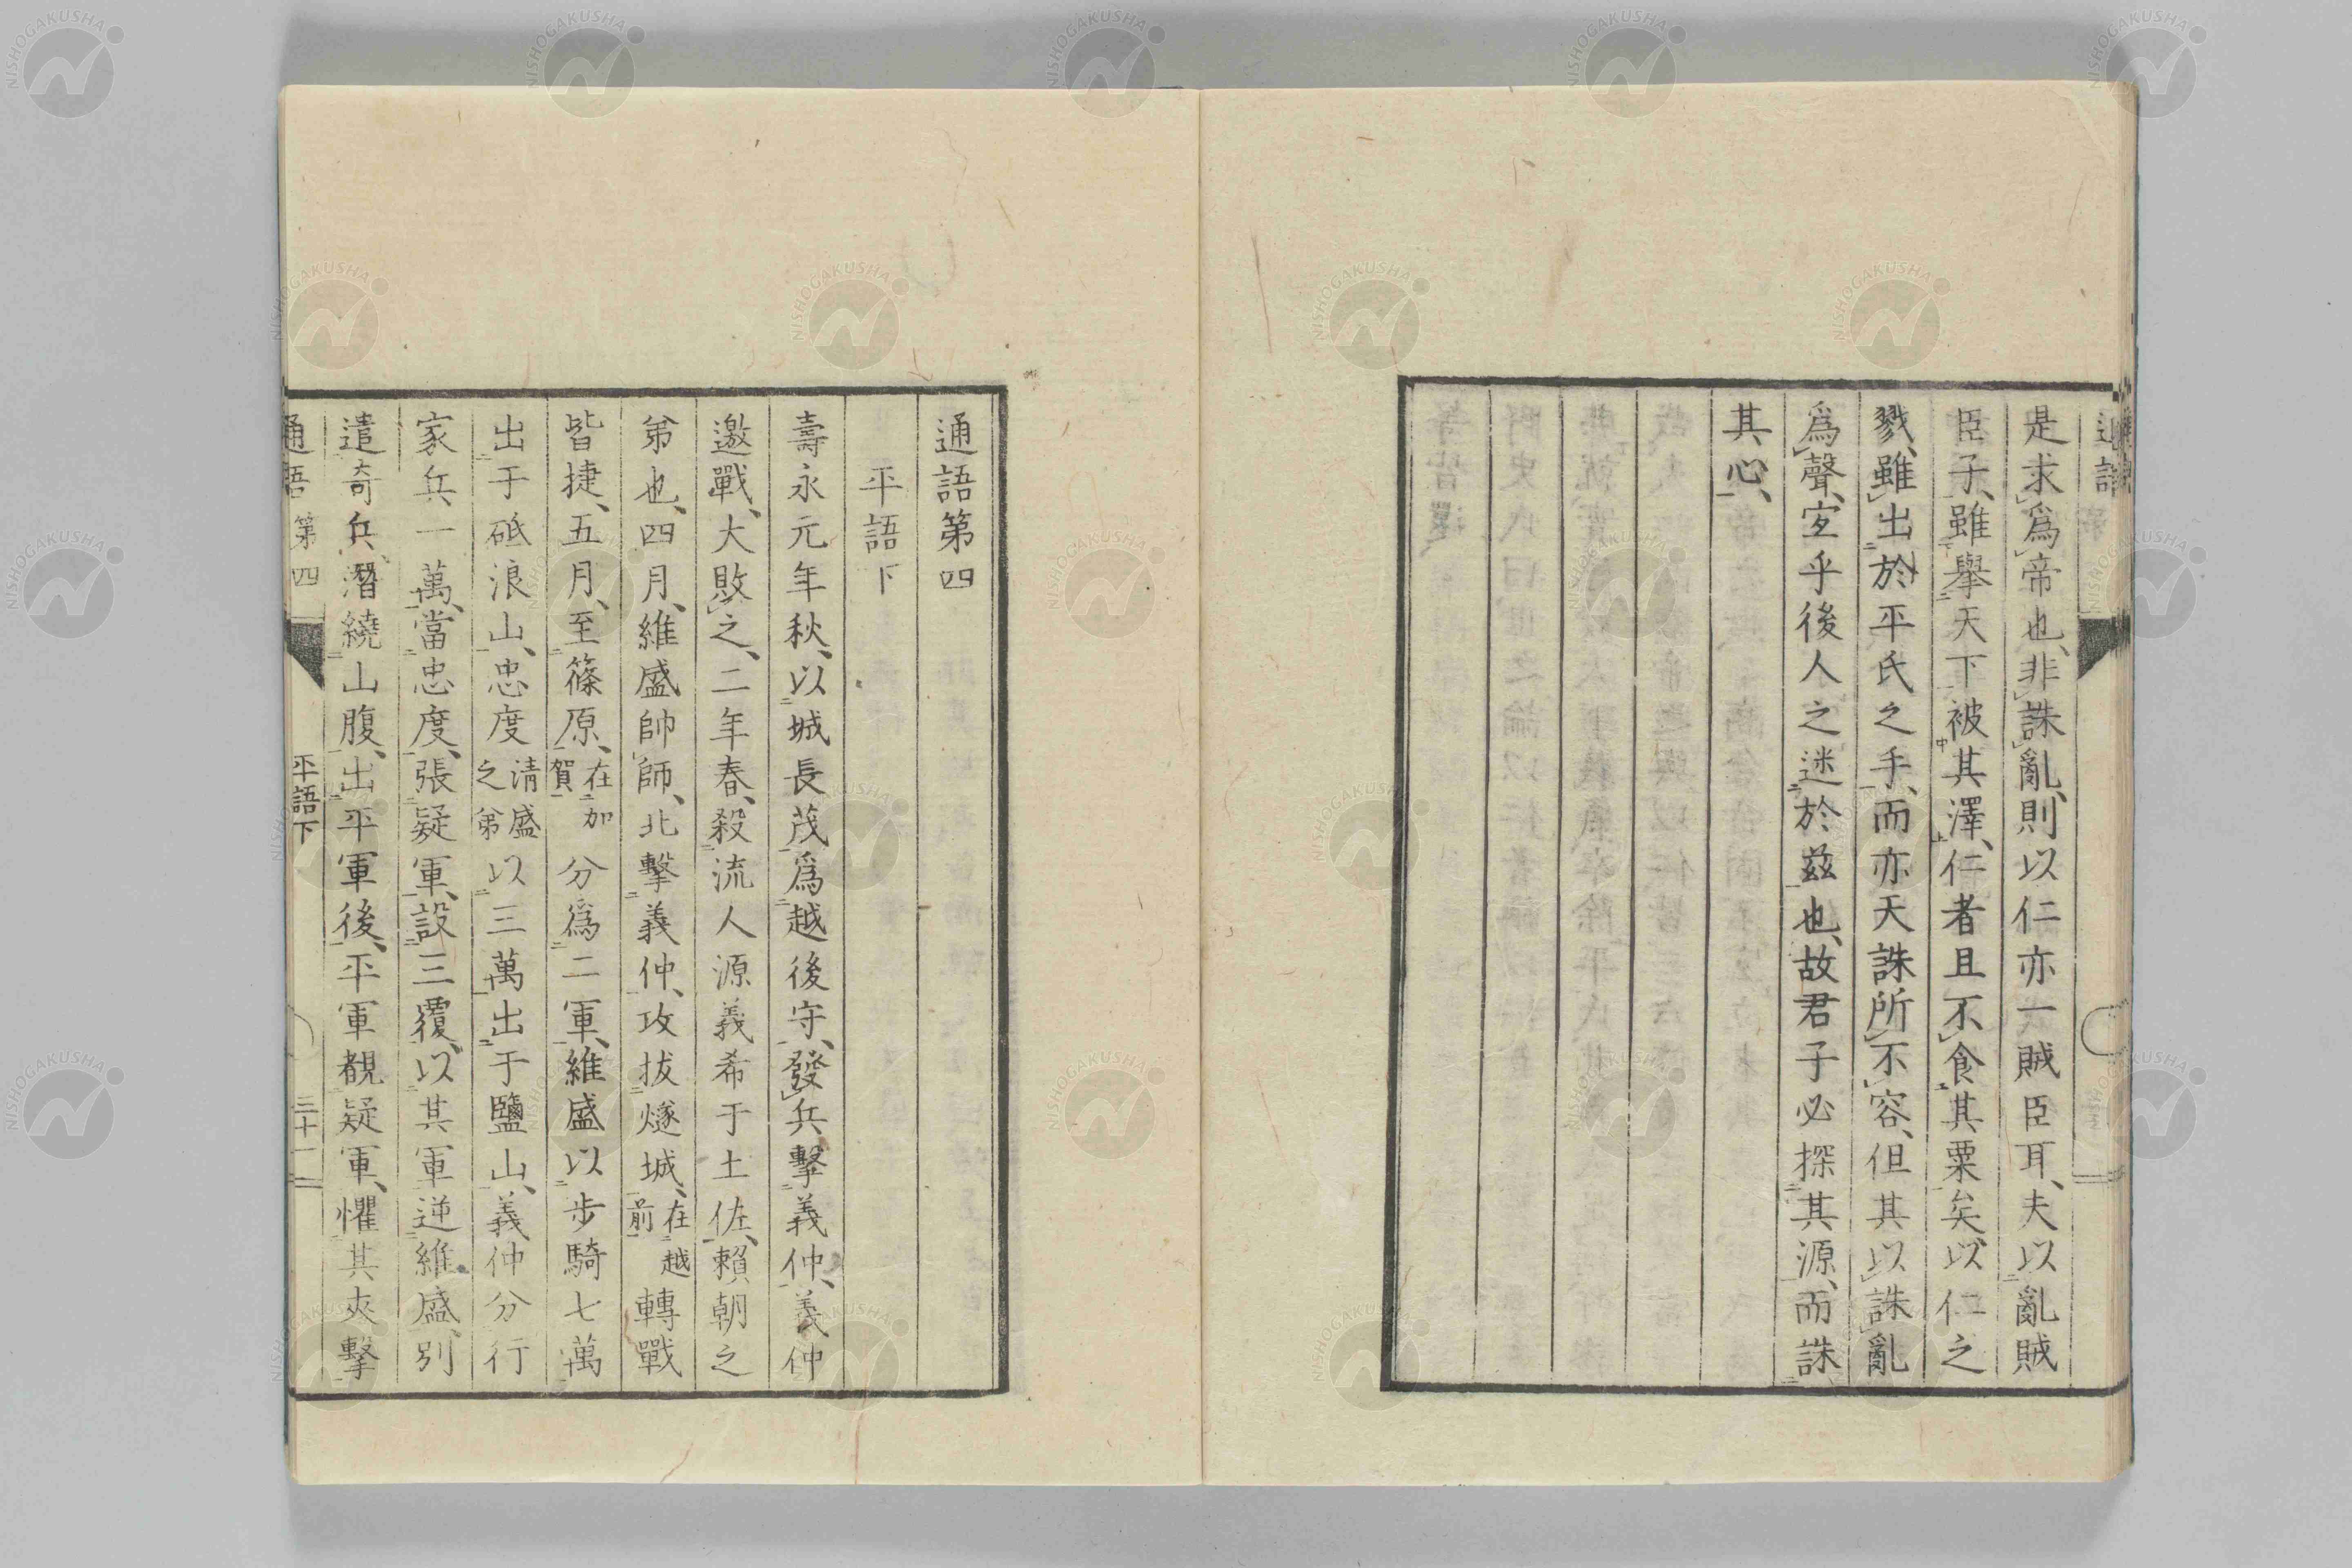 是求爲帝也、非誅亂、則以仁亦一賊臣耳、夫以亂賊
臣子、雖擧天下被其澤、仁者且不食其粟矣、以仁之
戮、雖出於平氏之手、而亦天誅所不容、但其以誅亂
爲聲、宜乎後人之迷於茲也、故君子必探其源、而誅
其心、
通語第四
平語下
壽永元年秋、以城長茂爲越後守、發兵擊義仲、義仲
邀戰、大敗之、二年春、殺流人源義希于土佐、賴朝之
弟也、四月、維盛帥師、北擊義仲、攻拔燧城、在越前轉戰
皆捷、五月、至篠原、在加賀分爲二軍、維盛以步騎七萬
出于砥浪山、忠度清盛之弟以三萬出于鹽山、義仲分行
家兵一萬、當忠度、張疑軍、設三覆、以其軍逆維盛、別
遣奇兵、潛繞山腹、出平軍後、平軍覩疑軍、懼其夾擊
通語 第四 平語下 二十一
NISHOGAKUSHA